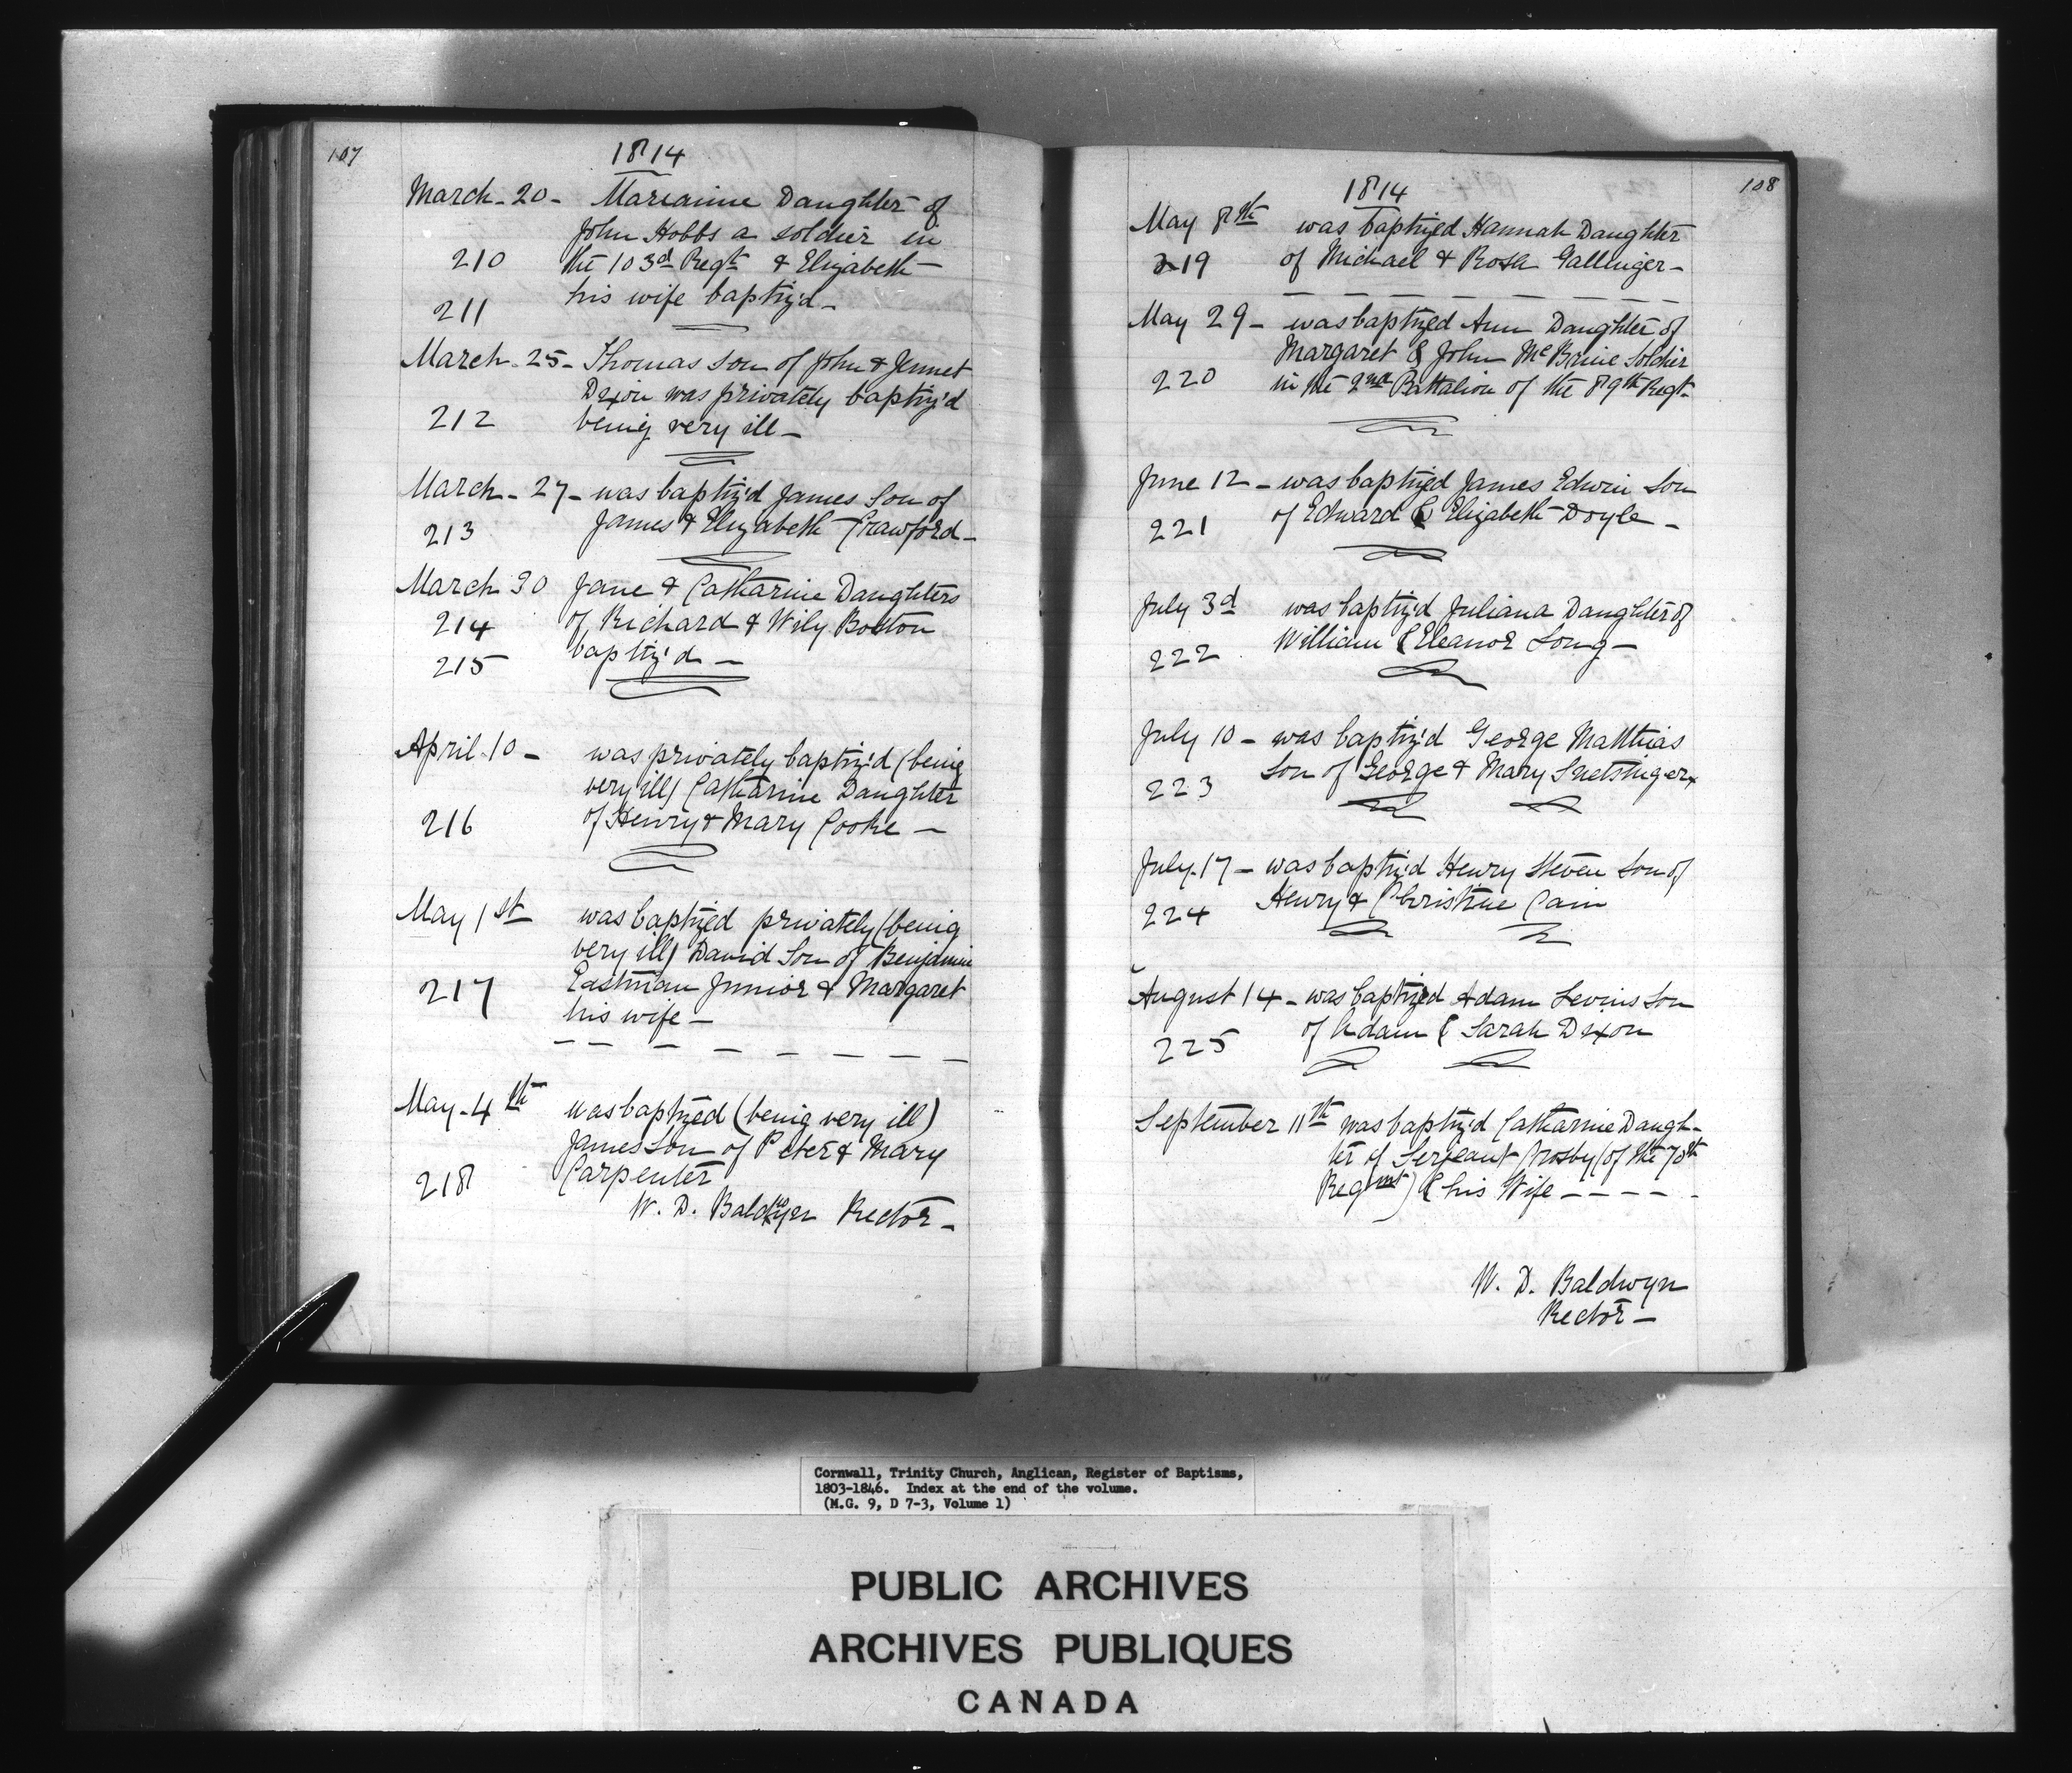 107
1814
March - 20 - Marianne Daughter of
John Hobbs a soldier in
210 the 103d Regt & Elizabeth
211 his wife baptiz'd -
March - 25 - Thomas son of John & Jennet
Dixon was privately baptiz'd
212 being very ill -
March - 27 - was baptiz'd James Son of
213 James & Elizabeth Crawford -
March 30 Jane & Catharine Daughters
214 of Richard & Wily Boston
215 baptiz'd -
April 10 - was privately baptiz'd (being
very ill) Catharine Daughter
216 of Henry & Mary Cooke -
May 1st was baptized privately (being
very ill) David Son of Benjamin
217 Eastman Junior & Margaret
his wife -
May - 4th was baptized (being very ill)
James Son of Peter & Mary
218 Carpenter
W. D. Baldwyn Rector -
108
1814
May 8th was baptized Hannah Daughter
219 of Michael & Rosa Gallinger -
May 29 - was baptized Ann Daughter of
Margaret & John McBrine Soldier
220 in the 2nd Battalion of the 89th Regt
June 12 - was baptized James Edwin Son
221 of Edward & Elizabeth Doyle -
July 3d was baptiz'd Juliana Daughter of
222 William & Eleanor Long -
July 10 - was baptiz'd George Matthias
223 Son of George & Mary Snetsinger x
July 17 - was baptiz'd Henry Steven Son of
224 Henry & Christine Cain
August 14 - was baptized Adam Levins Son
225 of Adam & Sarah Dixon
September 11th was baptiz'd Catharine Daugh-
ter of Serjeant Crosby (of the 70th
Regmt) & his Wife - - - -
W. D. Baldwyn
Rector -
Cornwall, Trinity Church, Anglican, Register of Baptisms,
1803-1846. Index at the end of the volume.
(M.G. 9, D 7-3, Volume 1)
PUBLIC ARCHIVES
ARCHIVES PUBLIQUES
CANADA